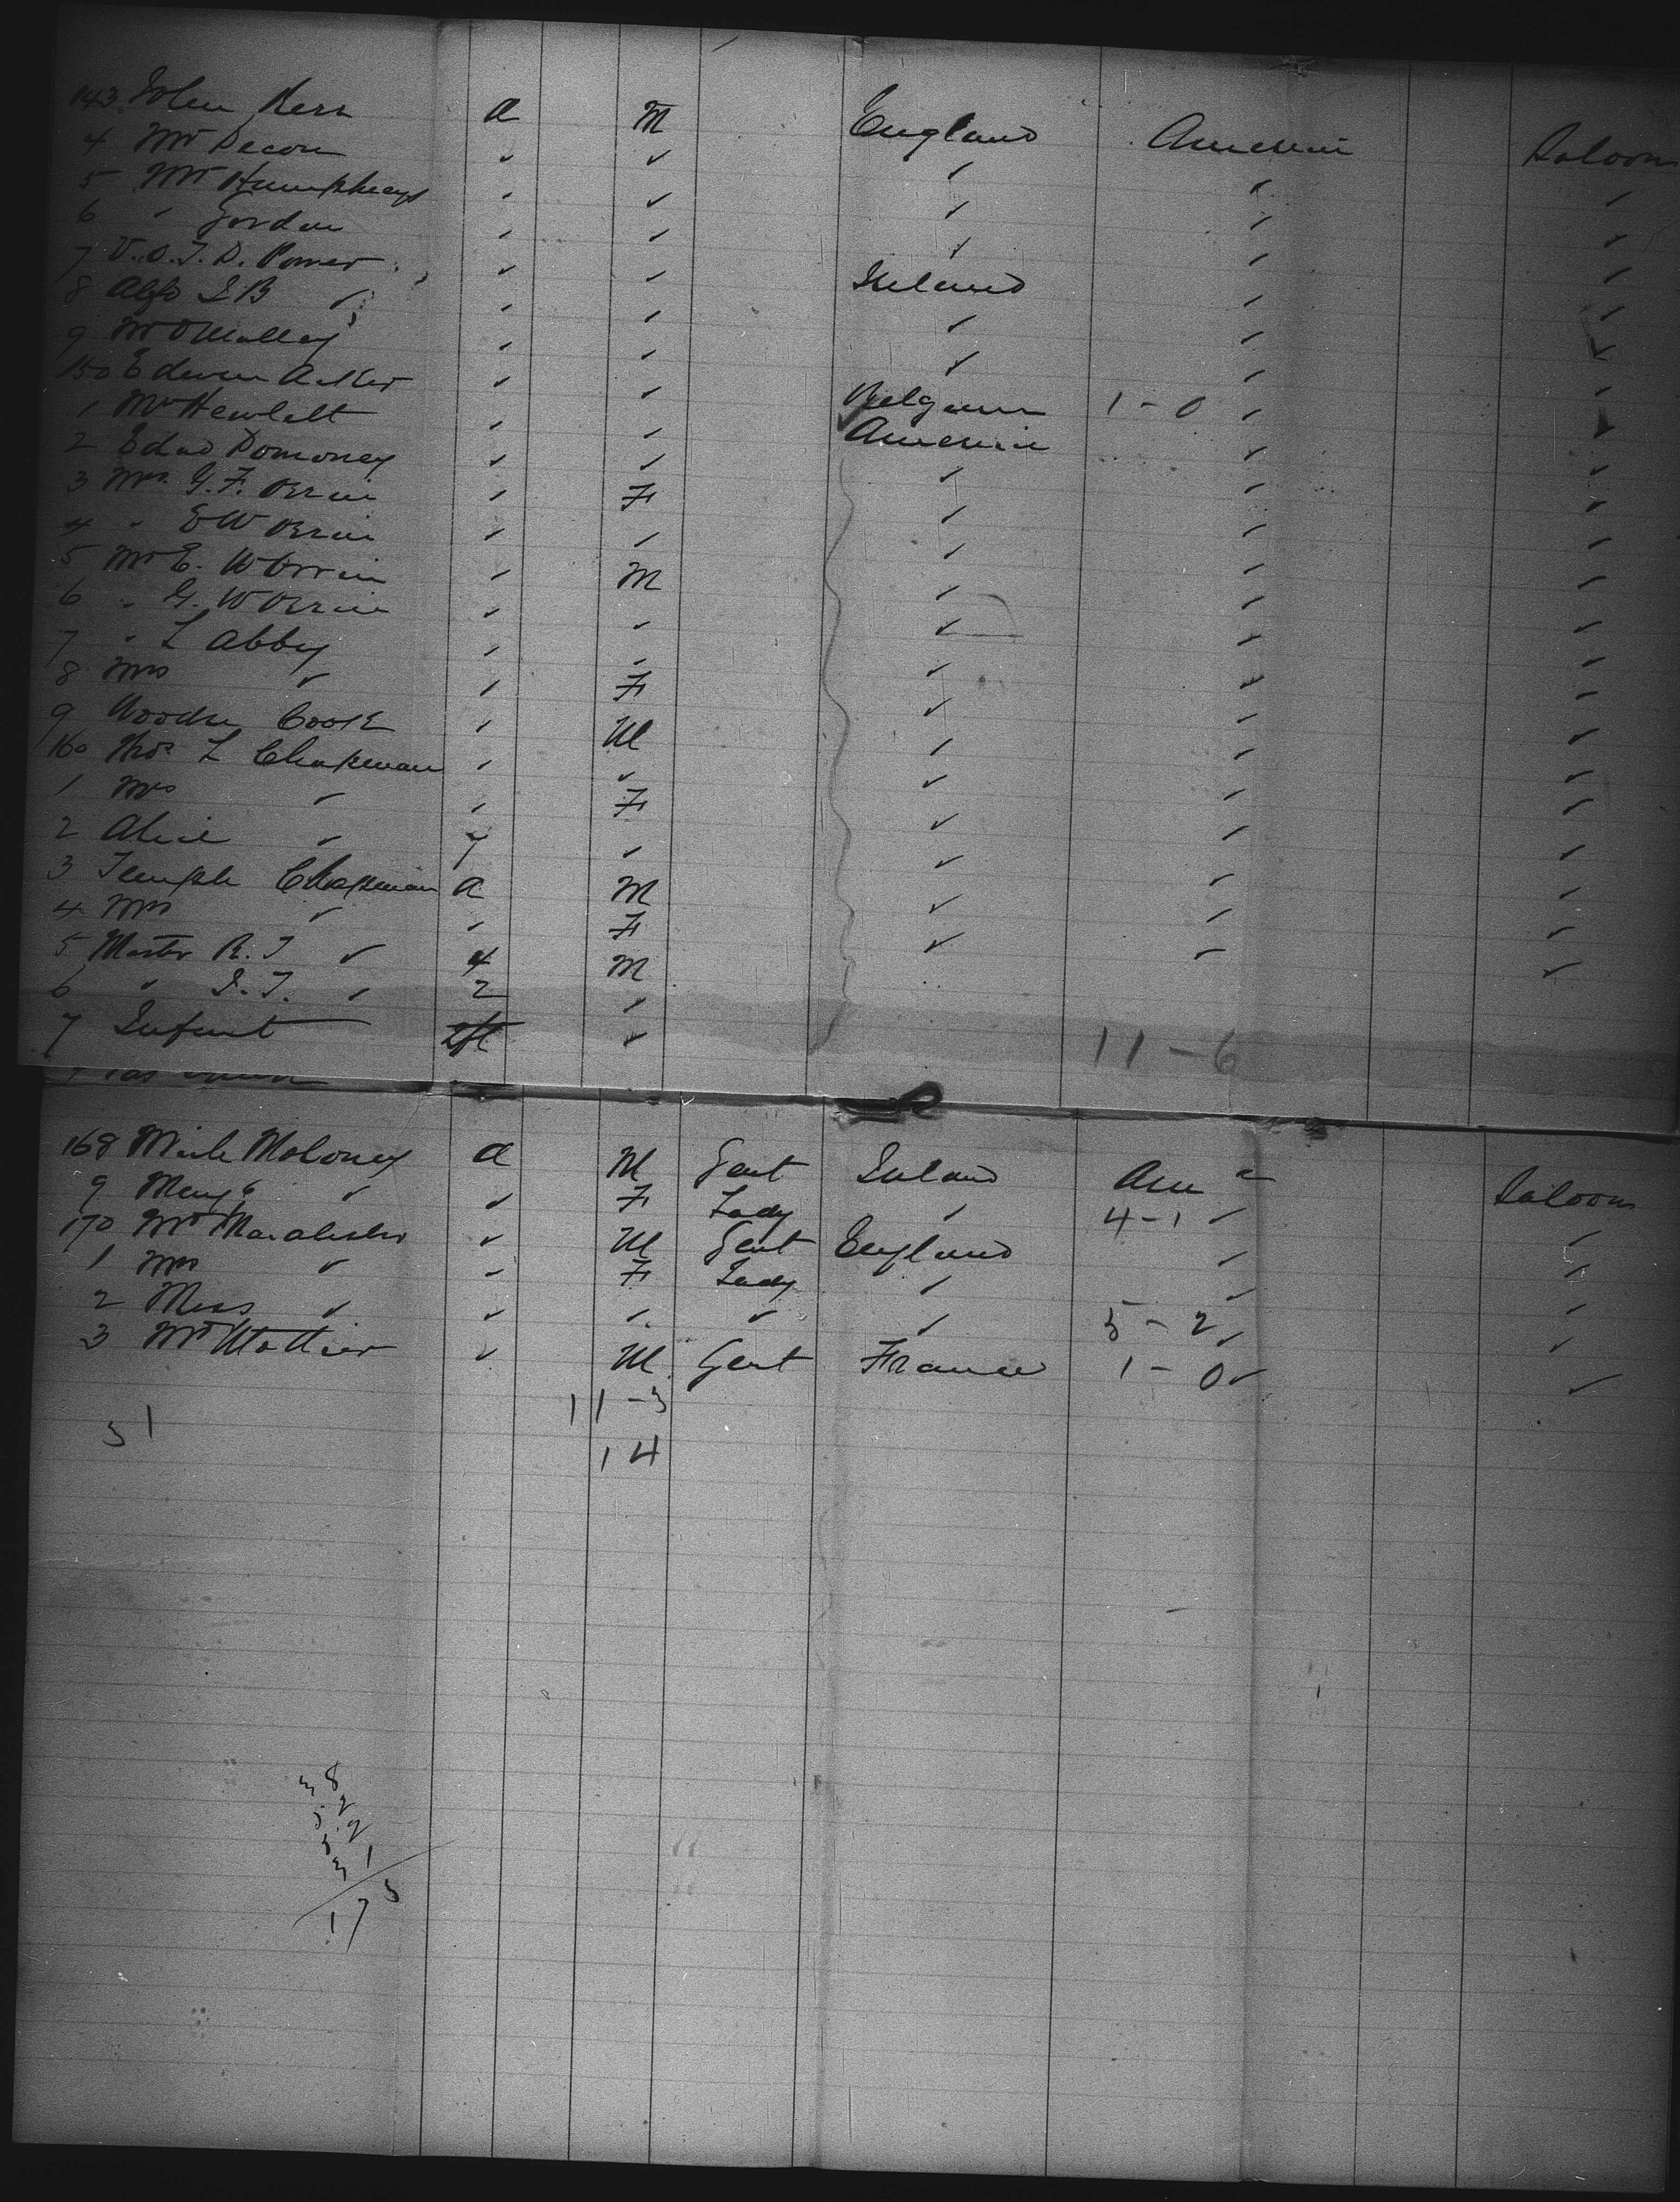 143 John Kerr a M England America Saloon
4 Mr Deacon ✓ ✓ ✓ ✓ ✓
5 Mr Humphreys ✓ ✓ ✓ ✓ ✓
6 " Gordon ✓ ✓ ✓ ✓ ✓
7 V.O.T.D. Power ✓ ✓ Ireland ✓ ✓
8 Alfd I B ✓ ✓ ✓ ✓ ✓ ✓
9 Mr O'Malley ✓ ✓ ✓ ✓ ✓
150 Edwin ✓ ✓ Belgium 1-0 ✓ ✓
1 Mr Hewlett ✓ ✓ America ✓ ✓
2 Edwd Pomoney ✓ ✓ ✓ ✓ ✓
3 Mrs G.F. Orrin ✓ F ✓ ✓ ✓
4 " E W Orrin ✓ ✓ ✓ ✓ ✓
5 Mr E. W Orrin ✓ M ✓ ✓ ✓
6 " G. W Orrin ✓ ✓ ✓ ✓ ✓
7 " L Abby ✓ ✓ ✓ ✓ ✓
8 Mrs ✓ ✓ F ✓ ✓ ✓
9 Cook ✓ M ✓ ✓ ✓
160 Thos L Chapman ✓ ✓ ✓ ✓ ✓
1 Mrs ✓ ✓ F ✓ ✓ ✓
2 Alice ✓ 7 ✓ ✓ ✓ ✓
3 Temple Chapman a M ✓ ✓ ✓
4 Mrs ✓ ✓ F ✓ ✓ ✓
5 Master R.T ✓ 4 M
6 " I.T. ✓ 2 ✓
7 Infant Inft ✓ 11-6
168 Mich Moloney a M Gent Ireland Am ca Saloon
9 Mary ✓ ✓ F Lady ✓ 4-1 ✓ ✓
170 Mr ✓ M Gent England ✓ ✓
1 Mrs ✓ ✓ F Lady ✓ ✓ ✓
2 Miss ✓ ✓ ✓ ✓ ✓ 5-2 ✓ ✓
3 Mr Mottier ✓ M Gent France 1-0 ✓ ✓
11-3
31
14
38
1
175